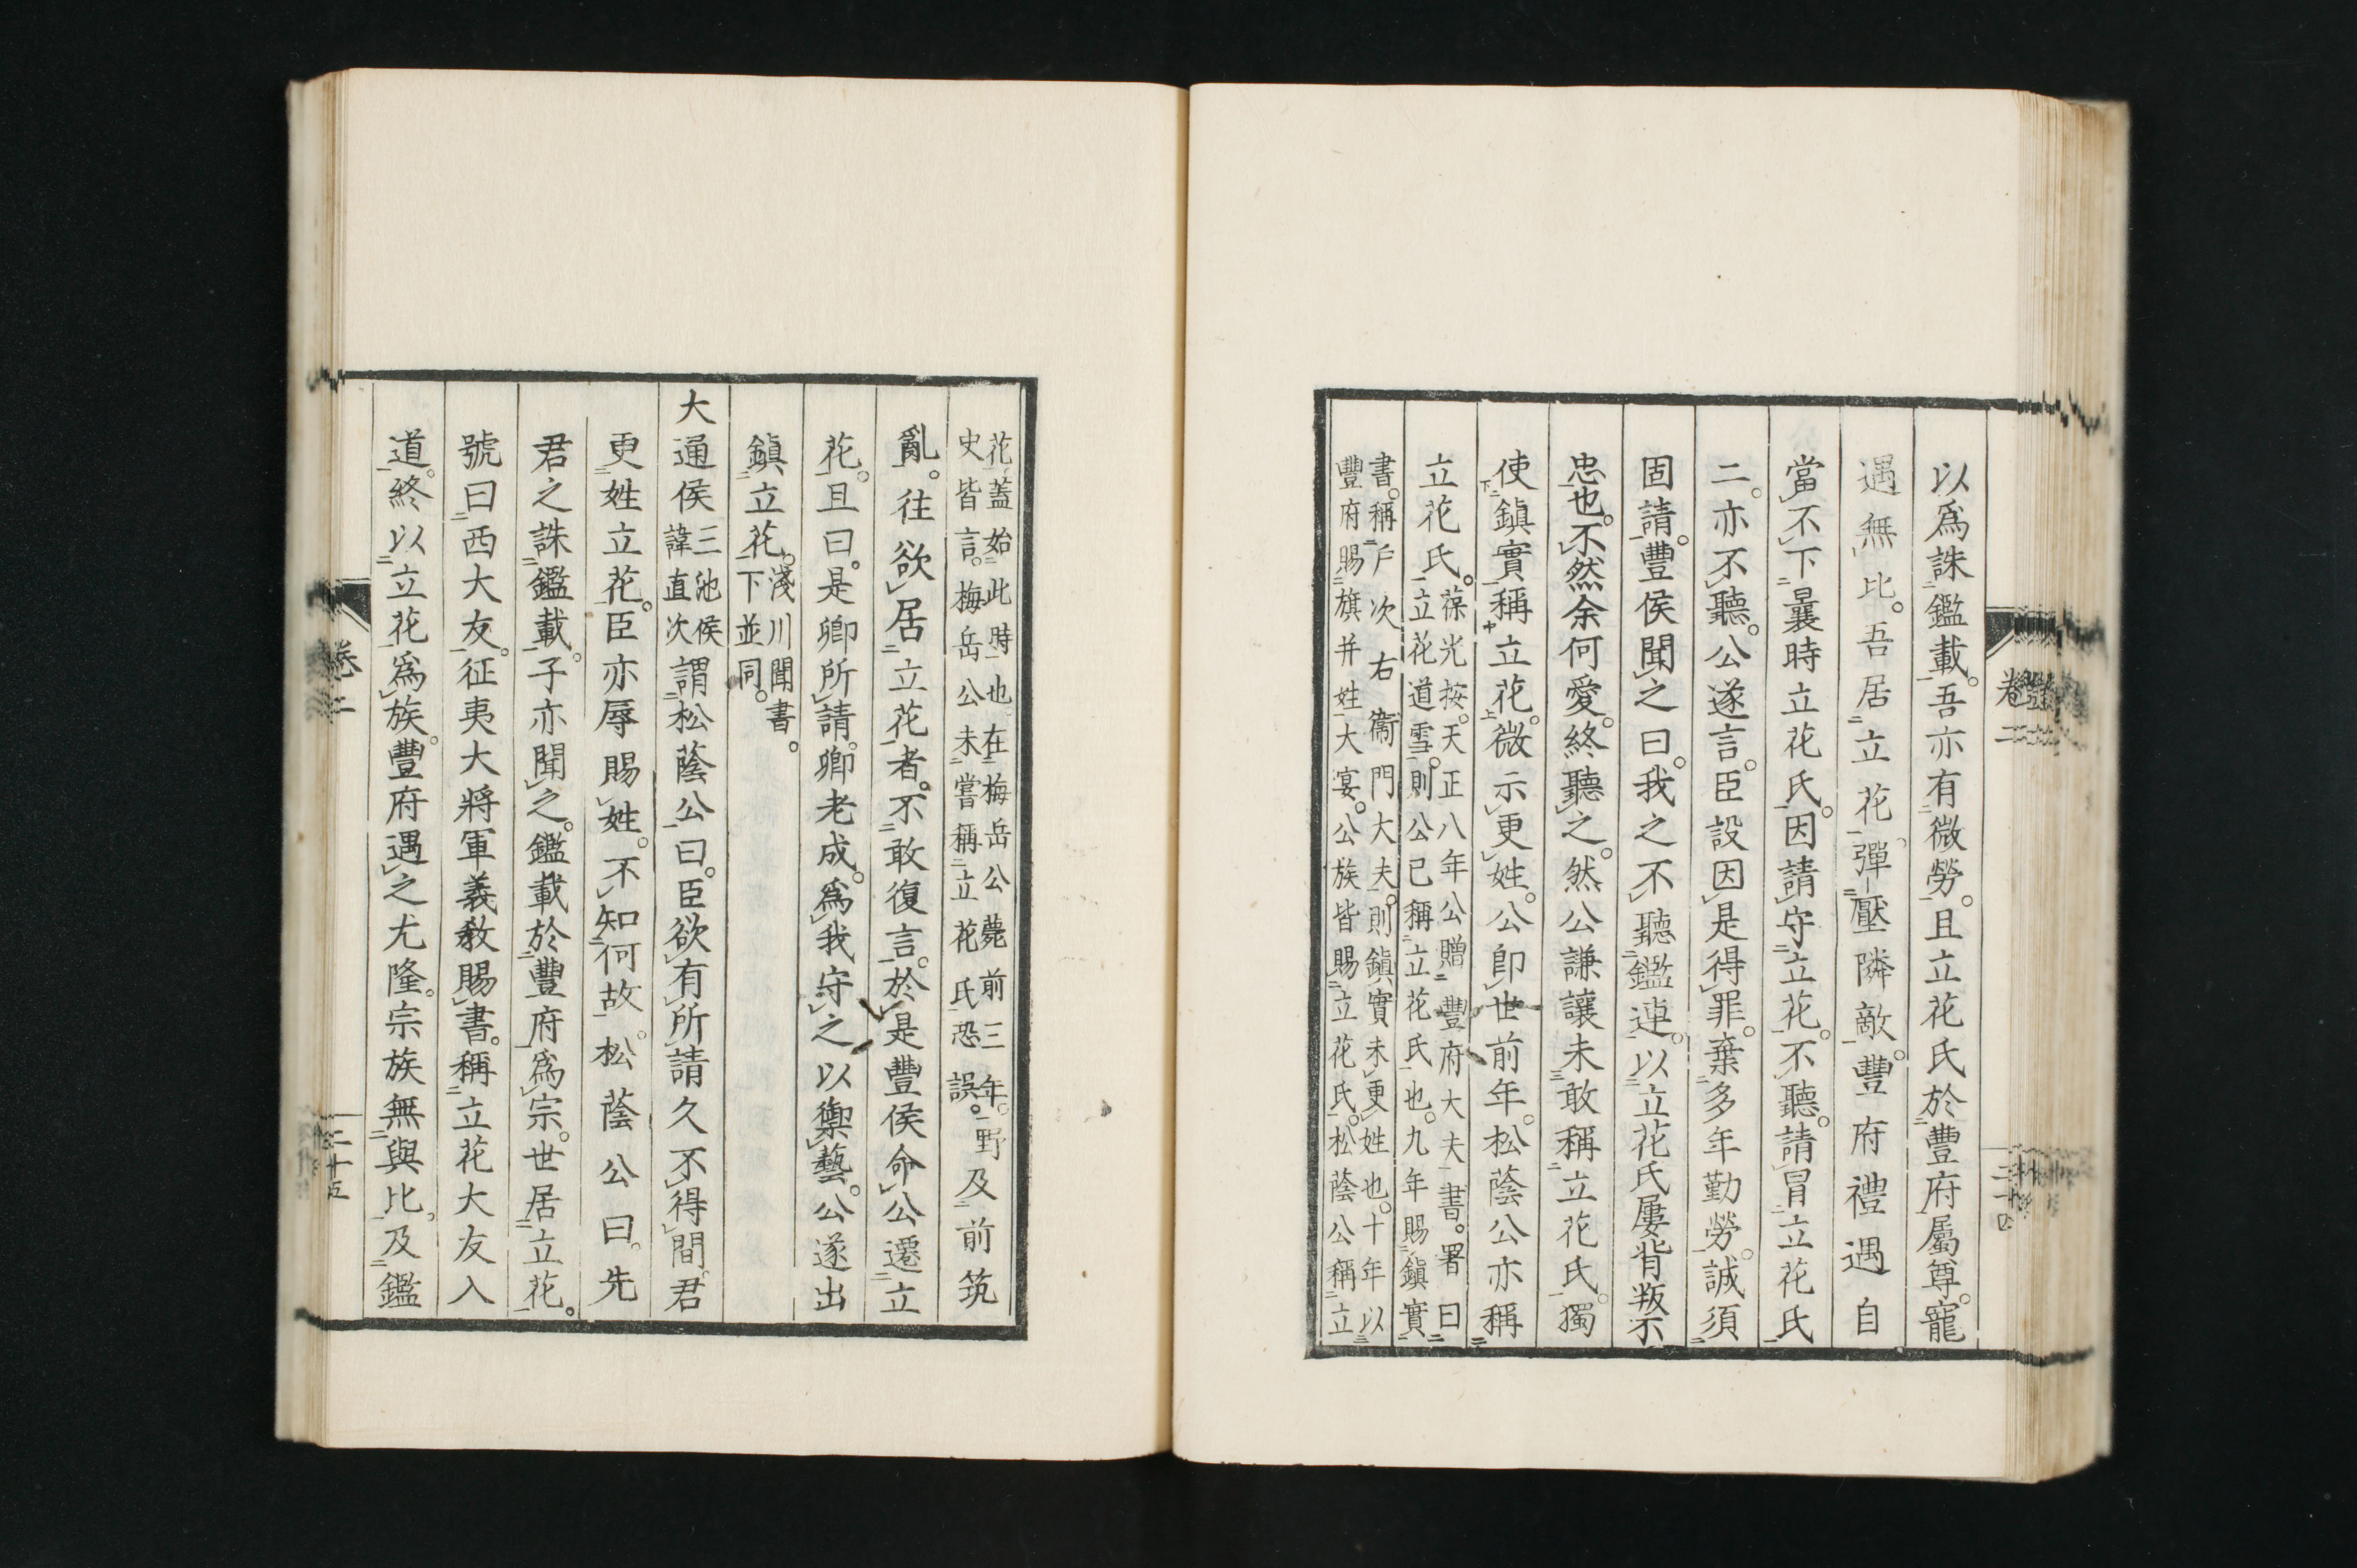 以爲誅鑑載。吾亦有微勞。且立花氏於豐府屬尊。寵
遇無比。吾居立花彈壓隣敵。豐府禮遇自
當不下曩時立花氏。因請守立花。不聽。請冒立花氏
二。亦不聽。公遂言。臣設因是得罪。棄多年勤勞。誠須
固請。豐侯聞之曰。我之不聽鑑連。以立花氏屢背叛不
忠也。不然余何愛。終聽之。然公謙讓未敢稱立花氏。獨
使鎭實稱立花。微示更姓。公卽世前年。松蔭公亦稱
立花氏。葆光按。天正八年公贈豐府大夫書。署曰
立花道雪。則公已稱立花氏也。九年賜鎭實
書。稱戶次右衞門大夫。則鎭實未更姓也。十年以
豐府賜旗并姓大宴。公族皆賜立花氏。松蔭公稱立
卷二
二十四
花蓋始此時也。在梅岳公薨前三年。野
史皆言。梅岳公未嘗稱立花氏恐誤。及前筑
亂。往欲居立花者。不敢復言。於是豐侯命公遷立
花。且曰。是卿所請。卿老成。爲我守之以禦藝。公遂出
鎭立花。淺川聞書。
下並同。
大通侯三池侯
諱直次謂松蔭公曰。臣欲有所請久不得間。君
更姓立花。臣亦辱賜姓。不知何故。松蔭公曰。先
君之誅鑑載。子亦聞之。鑑載於豐府爲宗。世居立花。
號曰西大友。征夷大將軍義敎賜書。稱立花大友入
道。終以立花爲族。豐府遇之尤隆。宗族無與比。及鑑
卷二
二十五